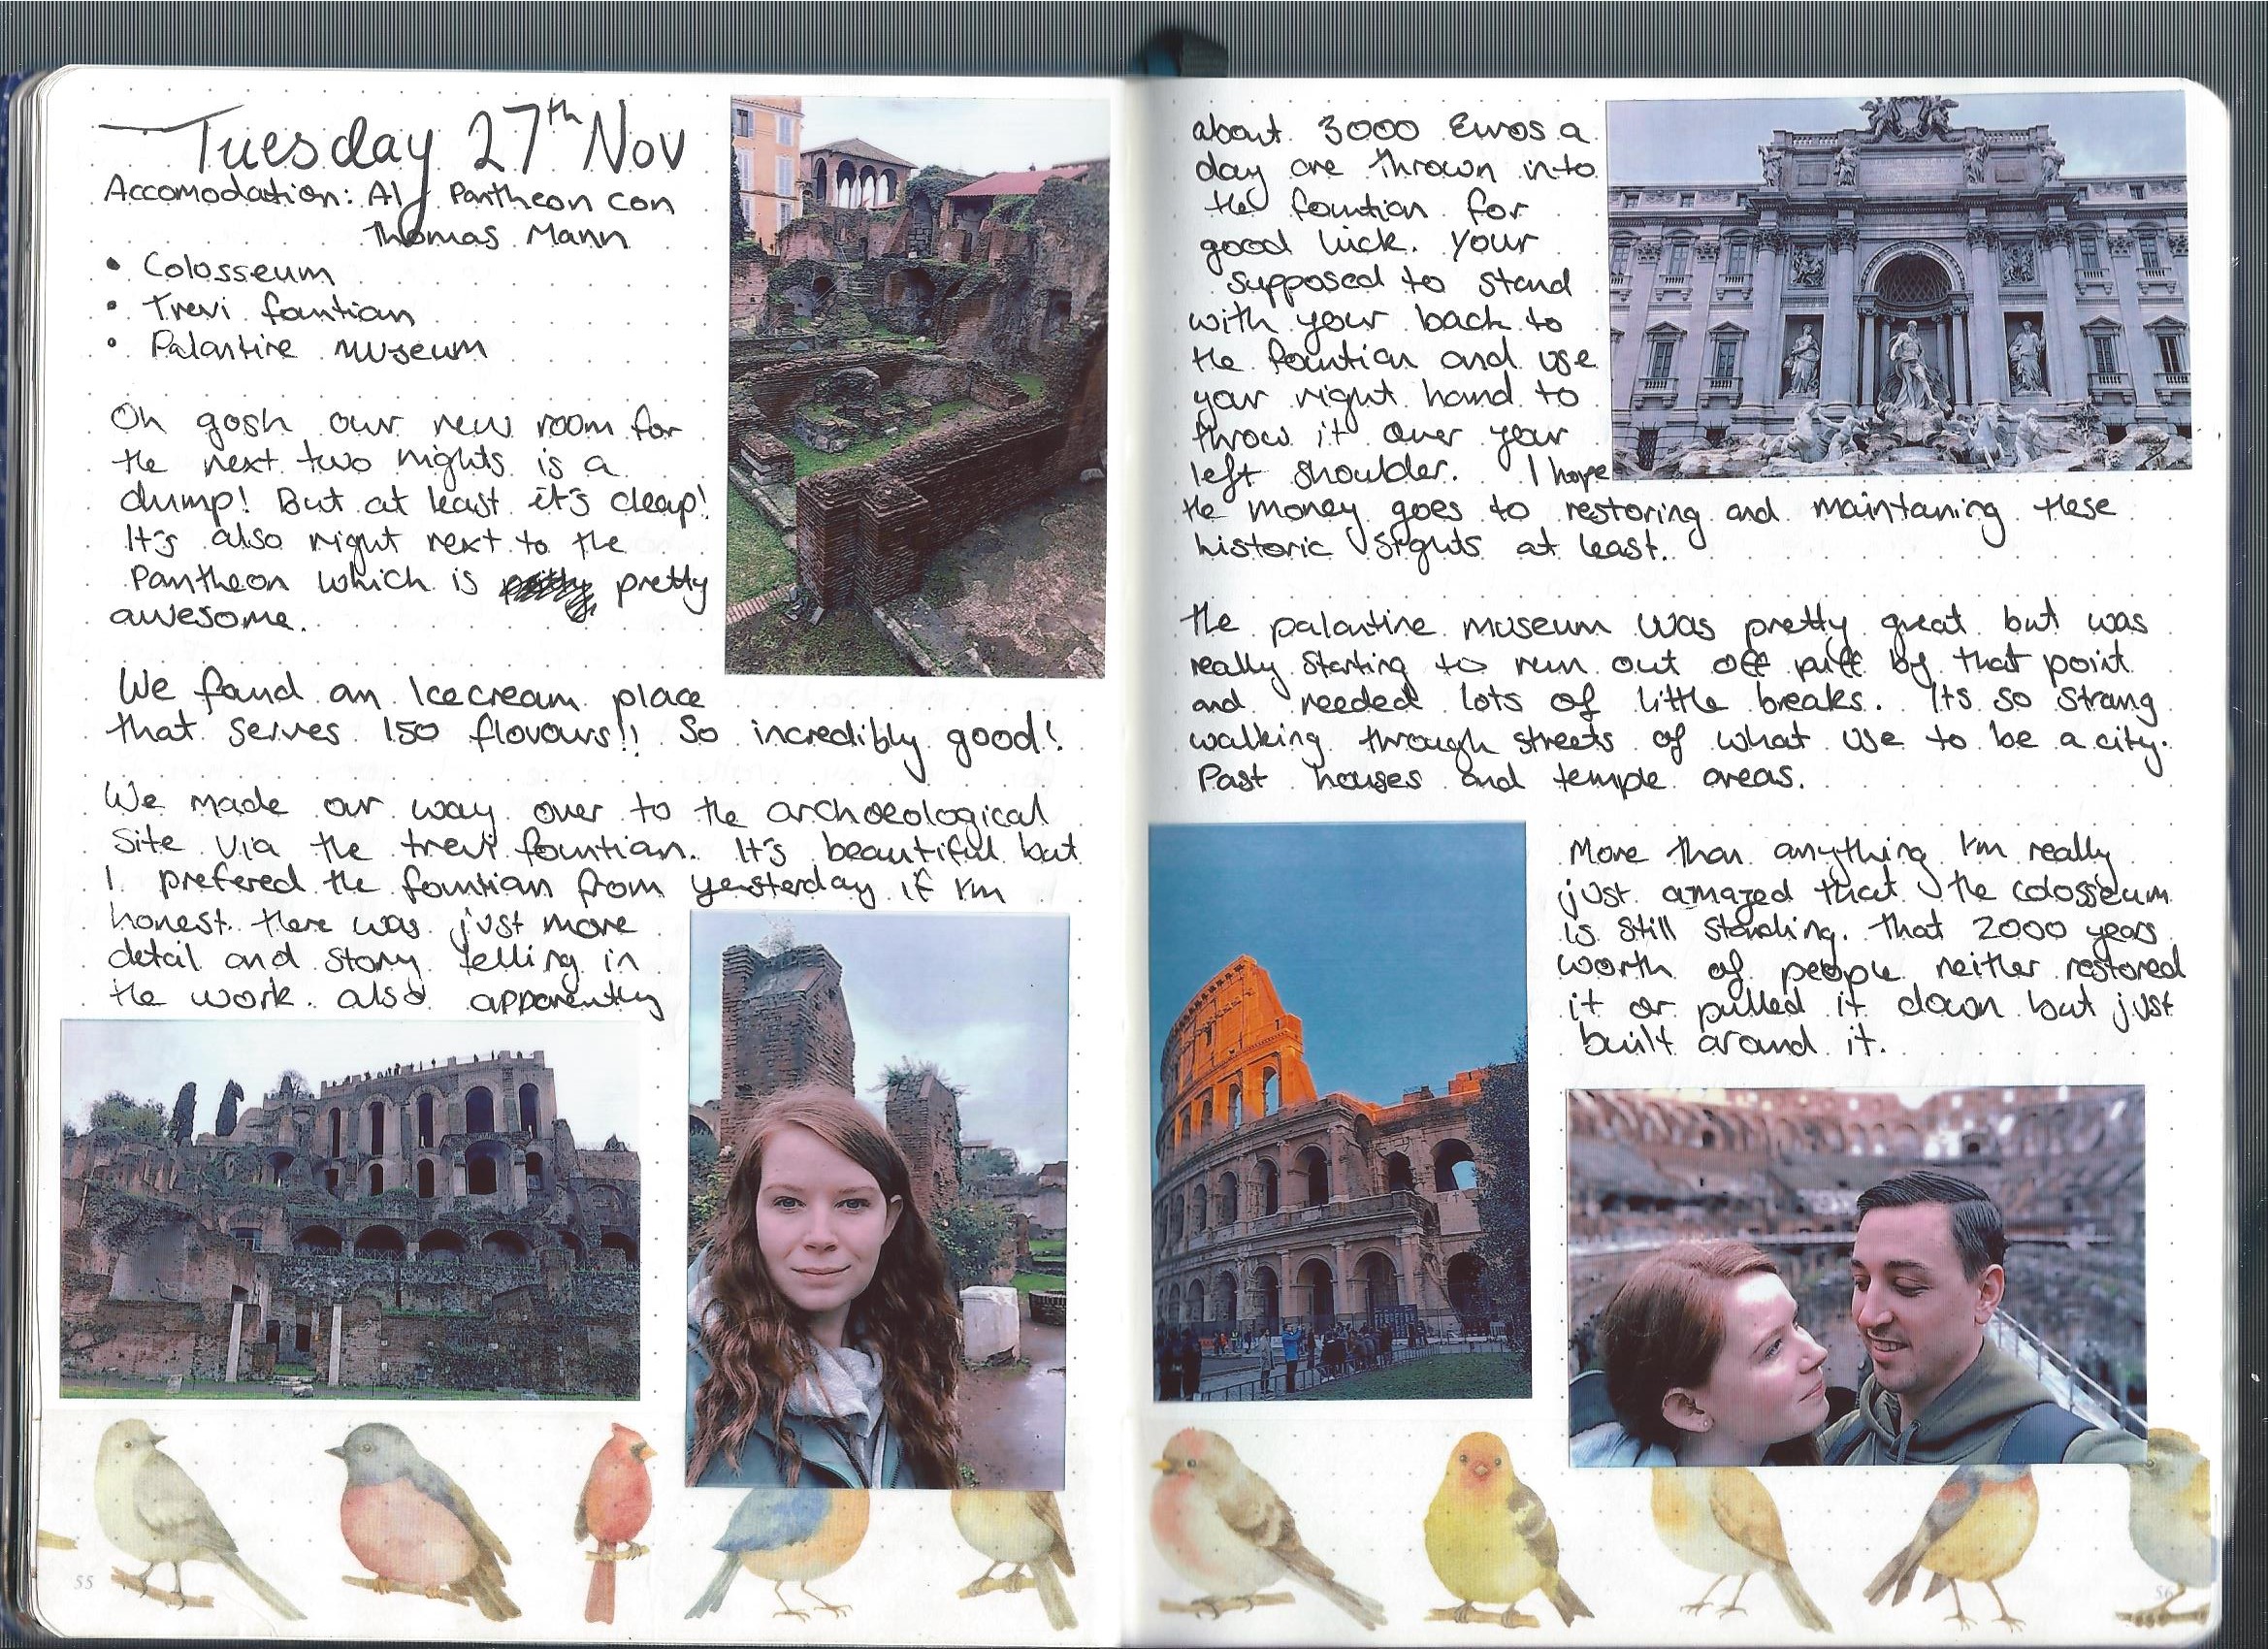 Tuesday 27th Nov
Accomodation: Al Pantheon con
Thomas Mann
• Colosseum
• Trevi fountian
• Palantine museum
Oh gosh our new room for
the next two nights is a
dump! But at least it's cheap!
It's also right next to the
Pantheon which is pretty
awesome.
We found an Icecream place
that serves 150 flovours!! So incredibly good!
We made our way over to the archaeological
Site via the trevi fountian. It's beautiful but
I prefered the fountian from yesterday if I'm
honest. there was just more
detail and story telling in
the work. also apparently
55
about 3000 Euros a
day are thrown into
the fountian for
good luck. Your
supposed to stand
with your back to
the fountian and use
your right hand to
throw it over your
left shoulder. I hope
the money goes to restoring and maintaning these
historic sights at least.
The palantine museum was pretty great but was
really starting to run out off puff by that point
and needed lots of little breaks. Its so strang
walking through streets of what use to be a city.
Past houses and temple areas.
More than anything I'm really
just amazed that the colosseum
is still standing. That 2000 years
worth of people neither restored
it or pulled it down but just
built around it.
56